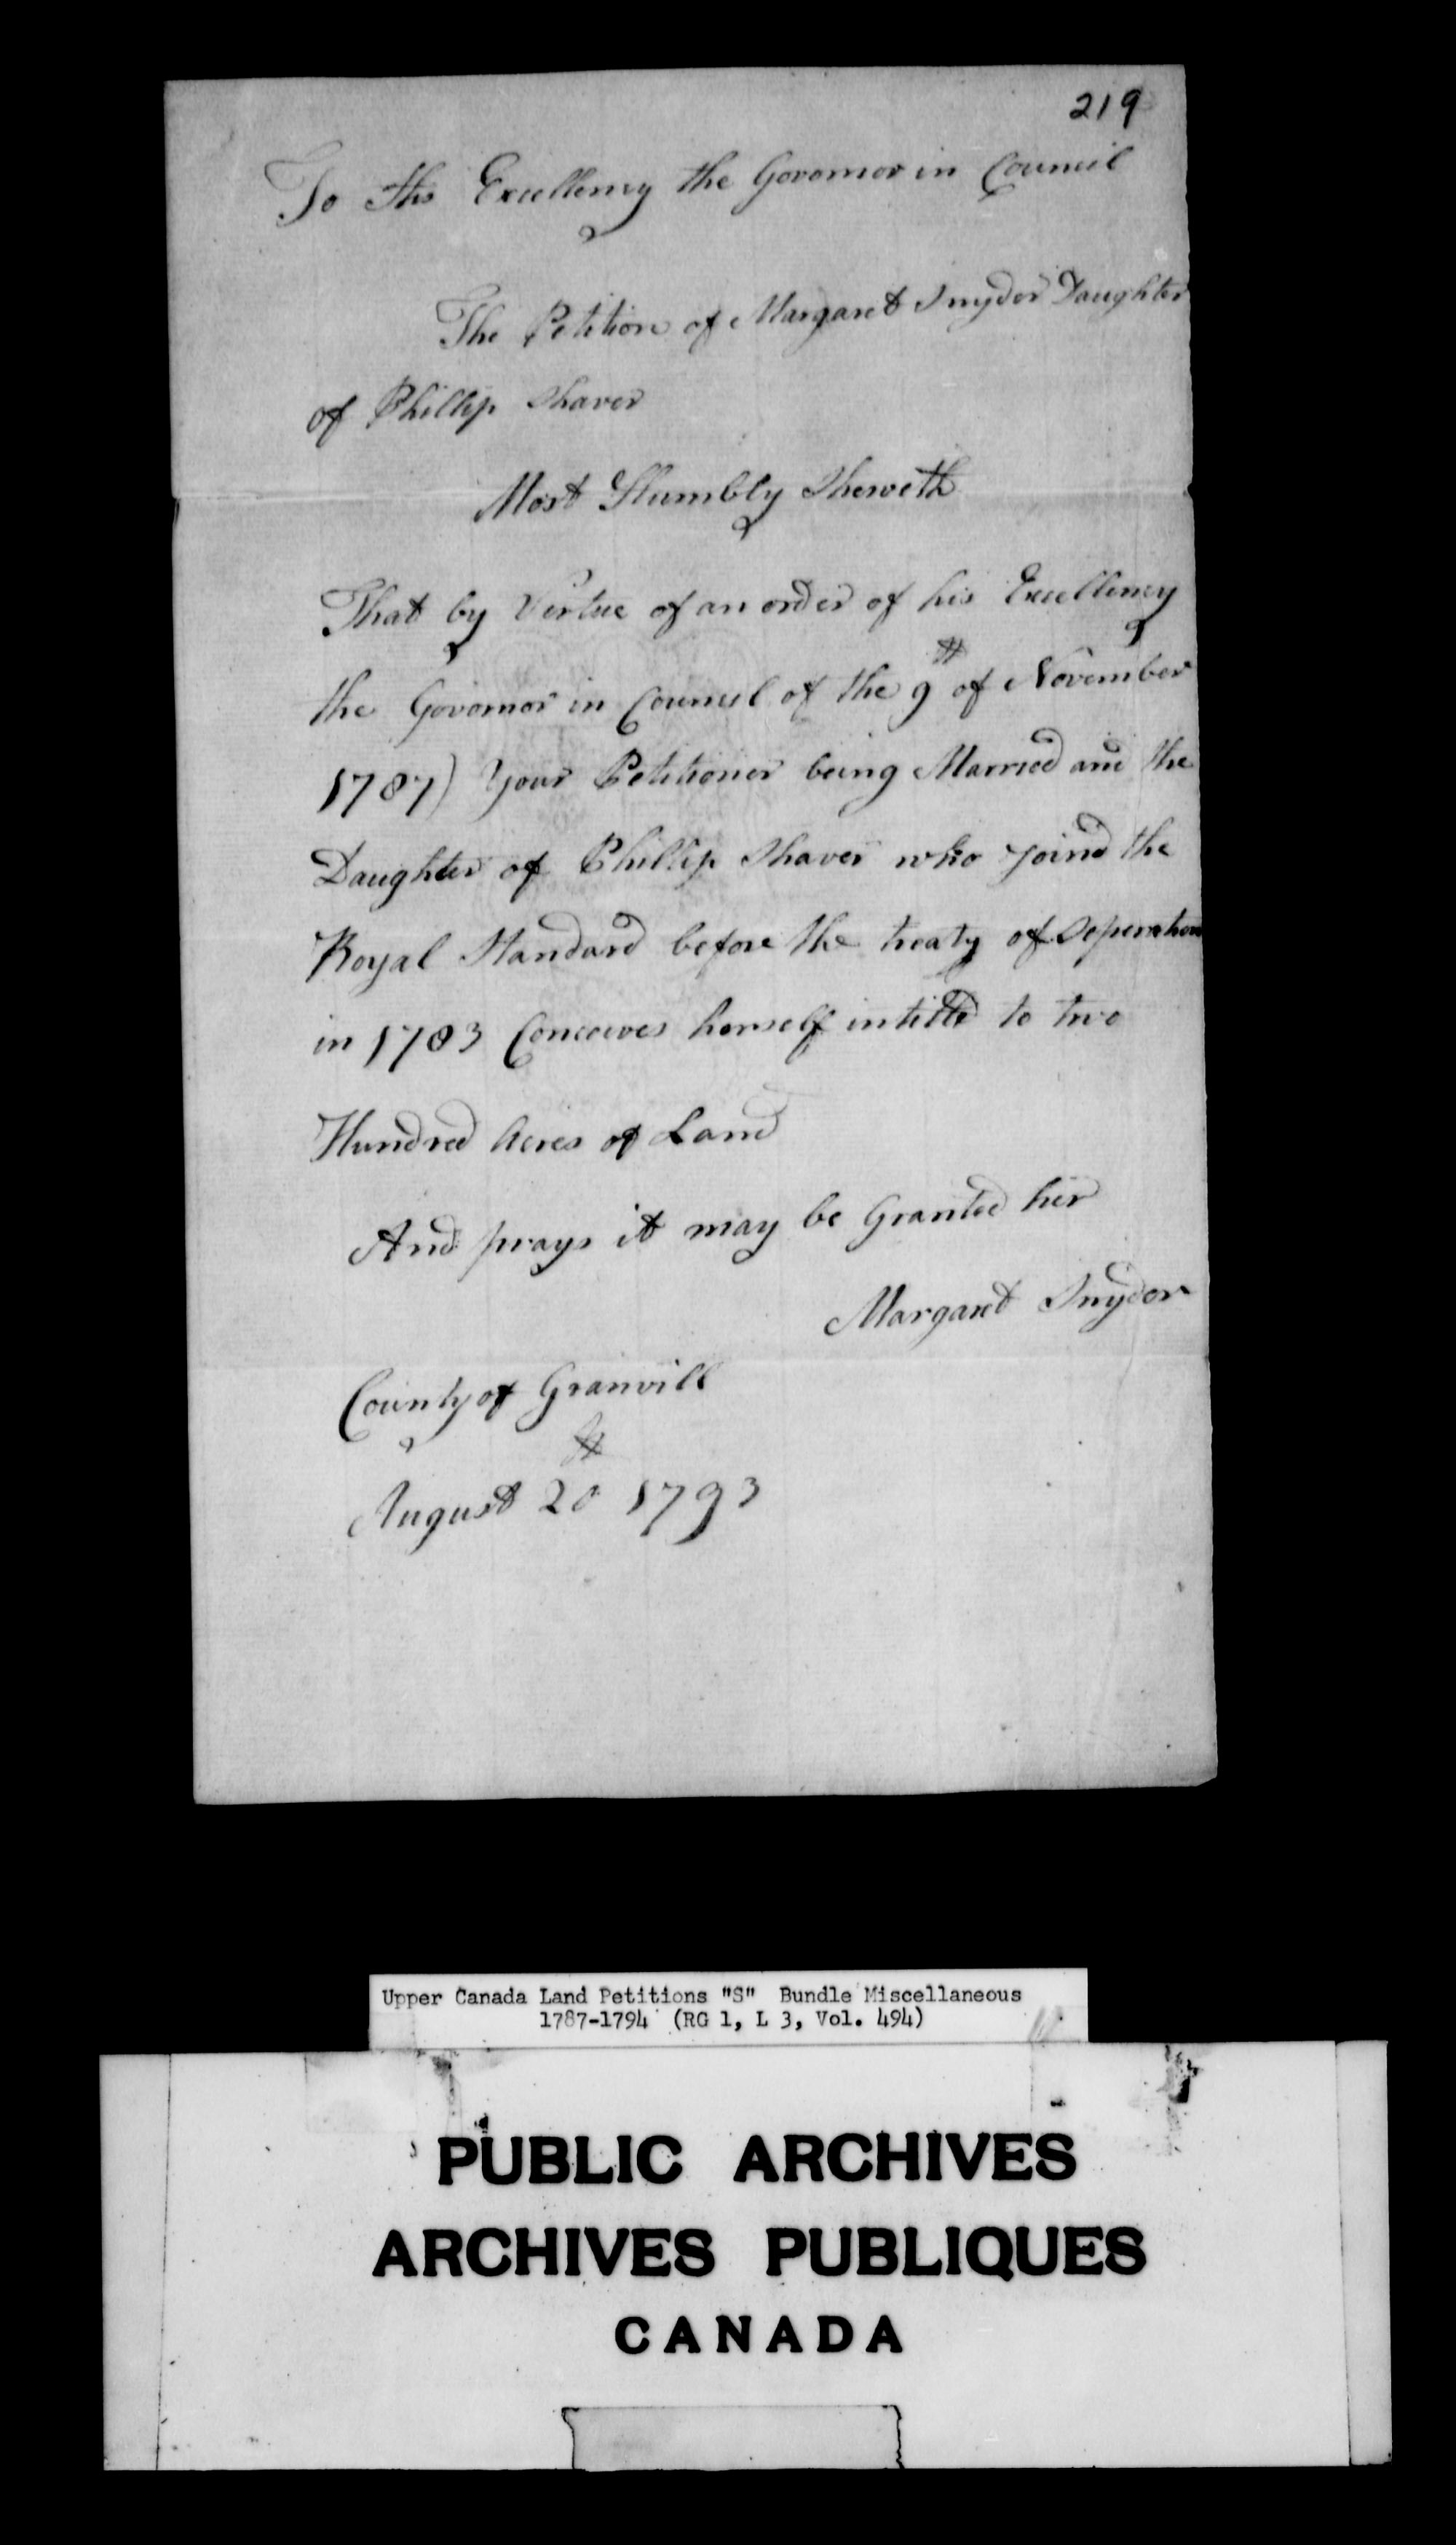 219
To His Excellency the Governor in Council
The Petition of Margaret Snyder Daughter
of Phillip Shaver
Most Humbly Sheweth
That by Virtue of an order of his Excellency
the Governor in Council of the 9th of November
1787) Your Petitioner being Married and the
Daughter of Phillip Shaver who Joind the
Royal Standard before the treaty of Seperation
in 1783 Conceives herself intitld to two
Hundred Acres of Land
And prays it may be Granted her
Margaret Snyder
County of Granvill
August 20th 1793
Upper Canada Land Petitions "S" Bundle Miscellaneous
1787-1794 (RG 1, L 3, Vol. 494)
PUBLIC ARCHIVES
ARCHIVES PUBLIQUES
CANADA